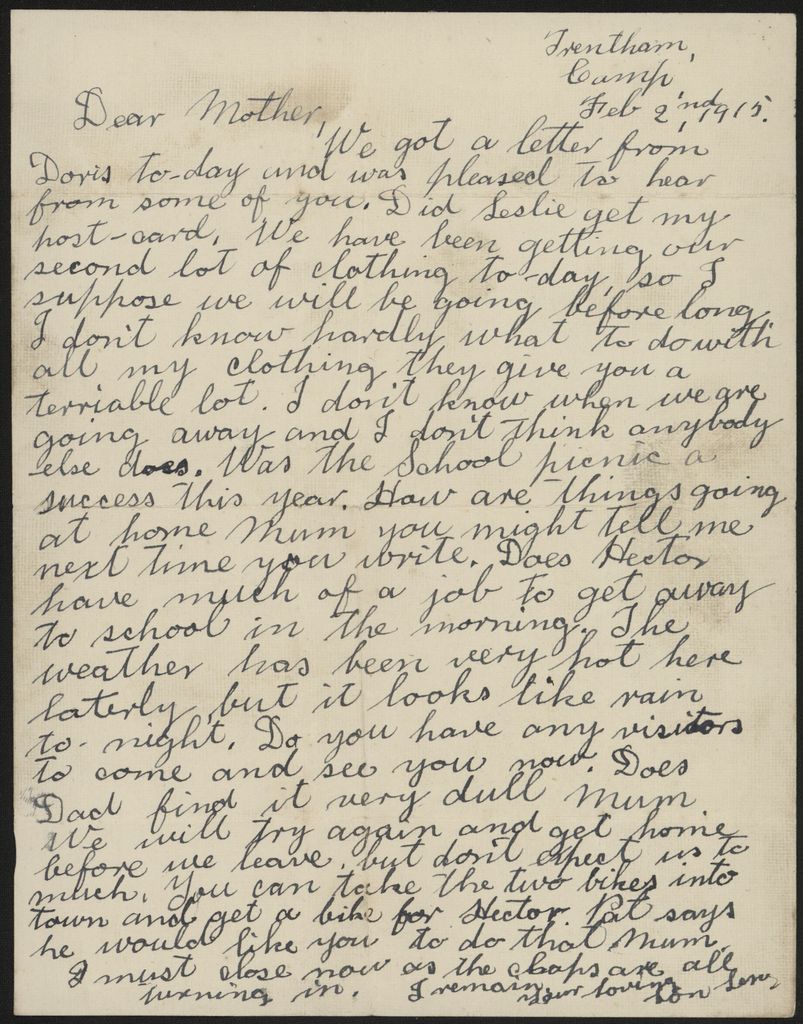 Trentham,
Camp,
Feb 2nd, 1915.
Dear Mother,
We got a letter from
Doris to-day and was pleased to hear
from some of you. Did Leslie get my
post-card. We have been getting our
second lot of clothing to-day, so I
suppose we will be going before long.
I don't know hardly what to do with
all my clothing they give you a
terriable lot. I don't know when we are
going away and I don't think anybody
else does. Was the School picnic a
success this year. How are things going
at home Mum you might tell me
next time you write. Does Hector
have much of a job to get away
to school in the morning. The
weather has been very hot here
laterly, but it looks like rain
to-night. Do you have any visitors
to come and see you now. Does
Dad find it very dull Mum
We will try again and get home
before we leave, but don't expect us to
much. You can take the two bikes into
town and get a bike for Hector. Pat says
he would like you to do that Mum.
I must close now as the chaps are all
turning in. I remain,
Your loving
Son